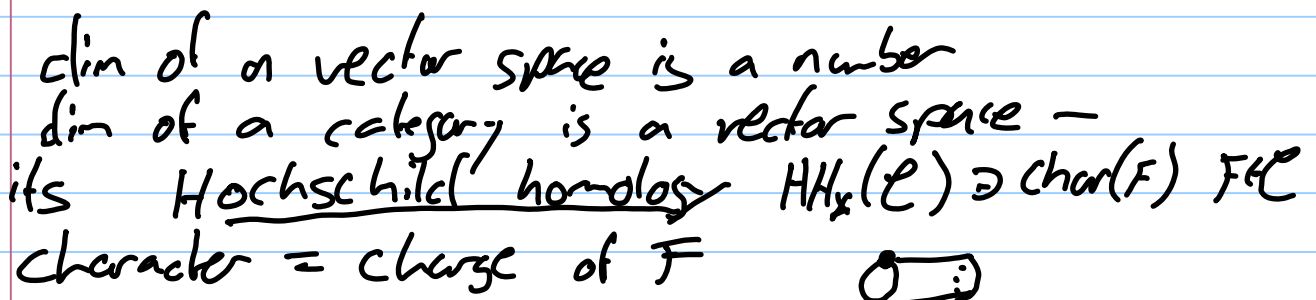 dim of a vector space is a number
dim of a category is a vector space —
its Hochschild homology HH_*(𝒞) ∋ char(F) F∈𝒞
character = charge of F